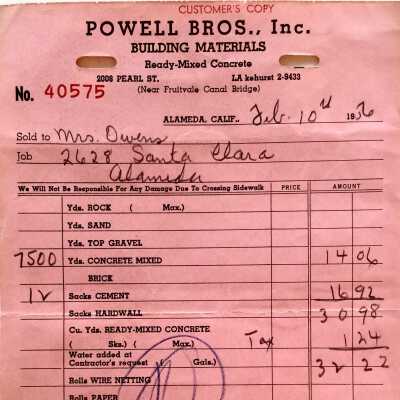 CUSTOMER'S COPY
POWELL BROS., Inc.
BUILDING MATERIALS
Ready-Mixed Concrete
2008 PEARL ST. LAkehurst 2-9433
No. 40575 (Near Fruitvale Canal Bridge)
ALAMEDA, CALIF., Feb. 10th 1956
Sold to Mrs. Owens
Job 2628 Santa Clara
Alameda
We Will Not Be Responsible For Any Damage Due To Crossing Sidewalk PRICE AMOUNT
Yds. ROCK ( Max.)
Yds. SAND
Yds. TOP GRAVEL
7500 Yds. CONCRETE MIXED 14 06
BRICK
12 Sacks CEMENT 16 92
Sacks HARDWALL 30 98
Cu. Yds. READY-MIXED CONCRETE
( Sks.) ( Max.) Tax 1 24
Water added at
Contractor's request ( Gals.) 32 22
Rolls WIRE NETTING
Rolls PAPER